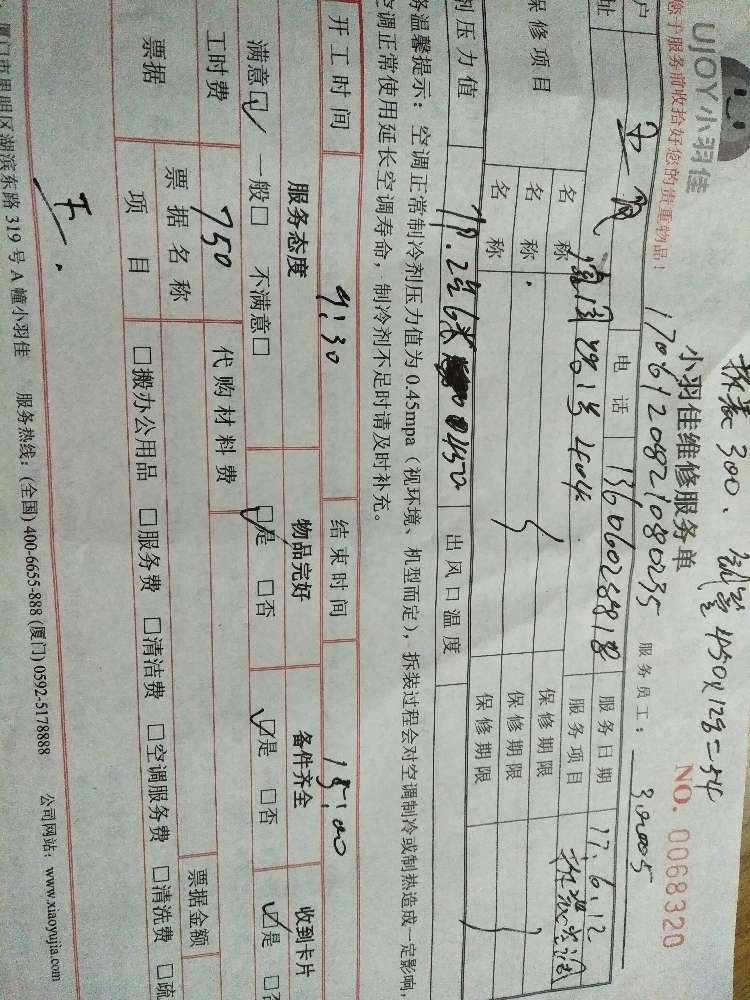 拆装300、铜管450×12%=54
UJOY小羽佳
小羽佳维修服务单
NO. 0068320
您于服务前收拾好您的贵重物品！
170612082108023S
服务员工：
户
电话
服务日期 17.6.12
址
服务项目
保修项目
名称
保修期限
名称
保修期限
名称
保修期限
剂压力值
出风口温度
务温馨提示：空调正常制冷剂压力值为0.45mpa（视环境、机型而定），拆装过程会对空调制冷或制热造成一定影响，
空调正常使用延长空调寿命，制冷剂不足时请及时补充。
开工时间 9:30 结束时间 15:00
服务态度 物品完好 备件齐全 收到卡片
满意☑ 一般□ 不满意□ ☑是 □否 ☑是 □否 ☑是 □否
工时费 750 代购材料费
票据 票据名称 票据金额
项目 □搬办公用品 □服务费 □清洁费 □空调服务费 □清洗费 □疏
厦门市思明区湖滨东路319号A幢小羽佳 服务热线：(全国) 400-6655-888 (厦门) 0592-5178888 公司网站：www.xiaoyujia.com